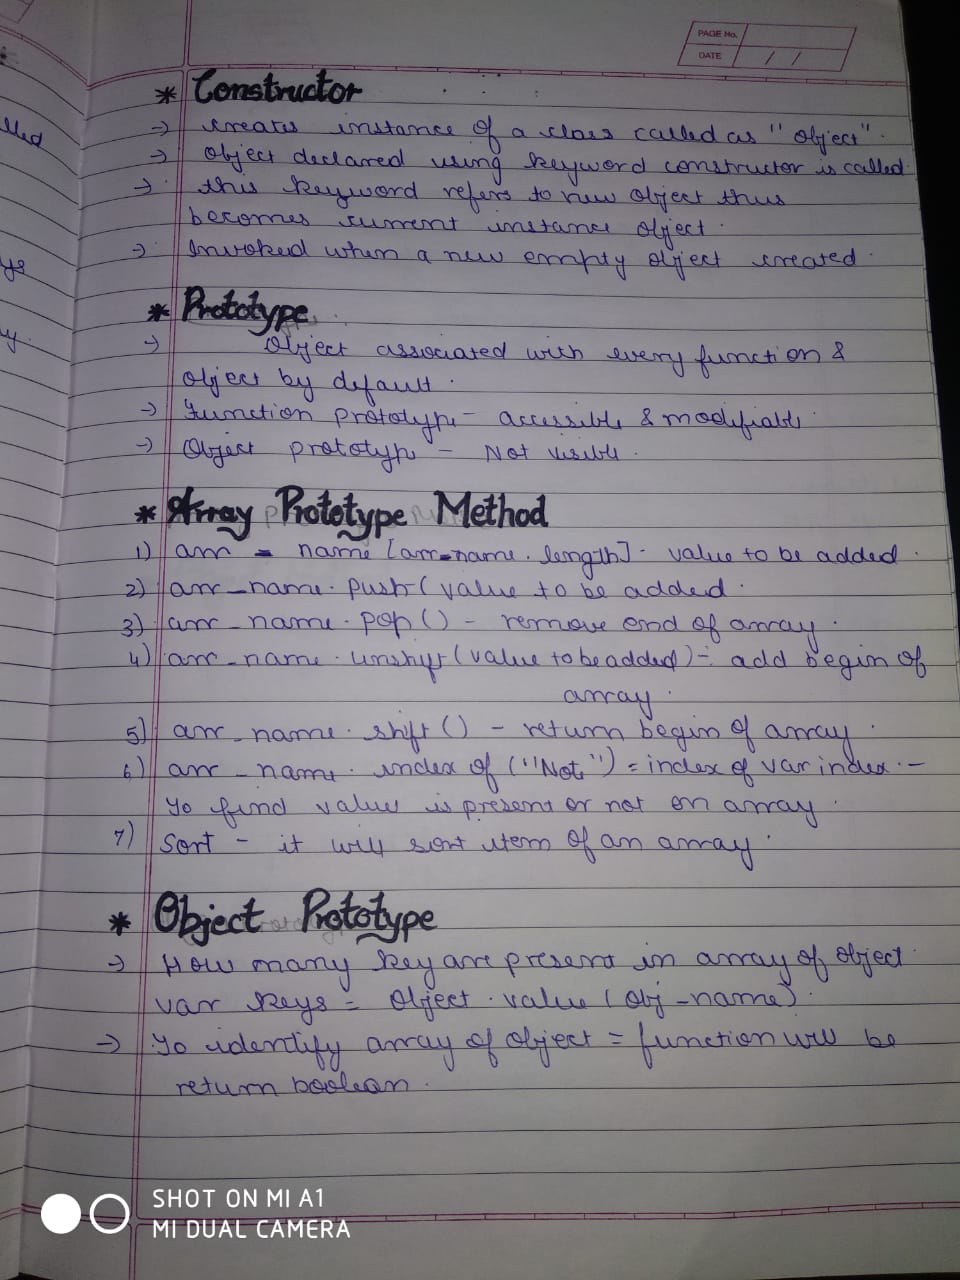 PAGE No.
DATE / /
* Constructor
→ creates instance of a class called as "object".
→ object declared using keyword constructor is called.
→ this keyword refers to new object thus
becomes current instance object.
→ Invoked when a new empty object created.
* Prototype
→ Object associated with every function &
object by default.
→ Function prototype - accessible & modifiable
→ Object prototype - Not visible.
* Array Prototype Method
1) arr - name [arr-name. length] - value to be added.
2) arr_name. push( value to be added.
3) arr_name. pop() - remove end of array.
4) arr_name. unshift(value to be added) - add begin of
array.
5) arr_name. shift () - return begin of array.
6) arr_name. index of ("Not") = index of var index. -
To find value is present or not on array.
7) Sort - it will sort item of an array.
* Object Prototype
→ How many key are present in array of object.
var keys = Object. value (obj-name).
→ To identify array of object = function will be
return boolean.
SHOT ON MI A1
MI DUAL CAMERA